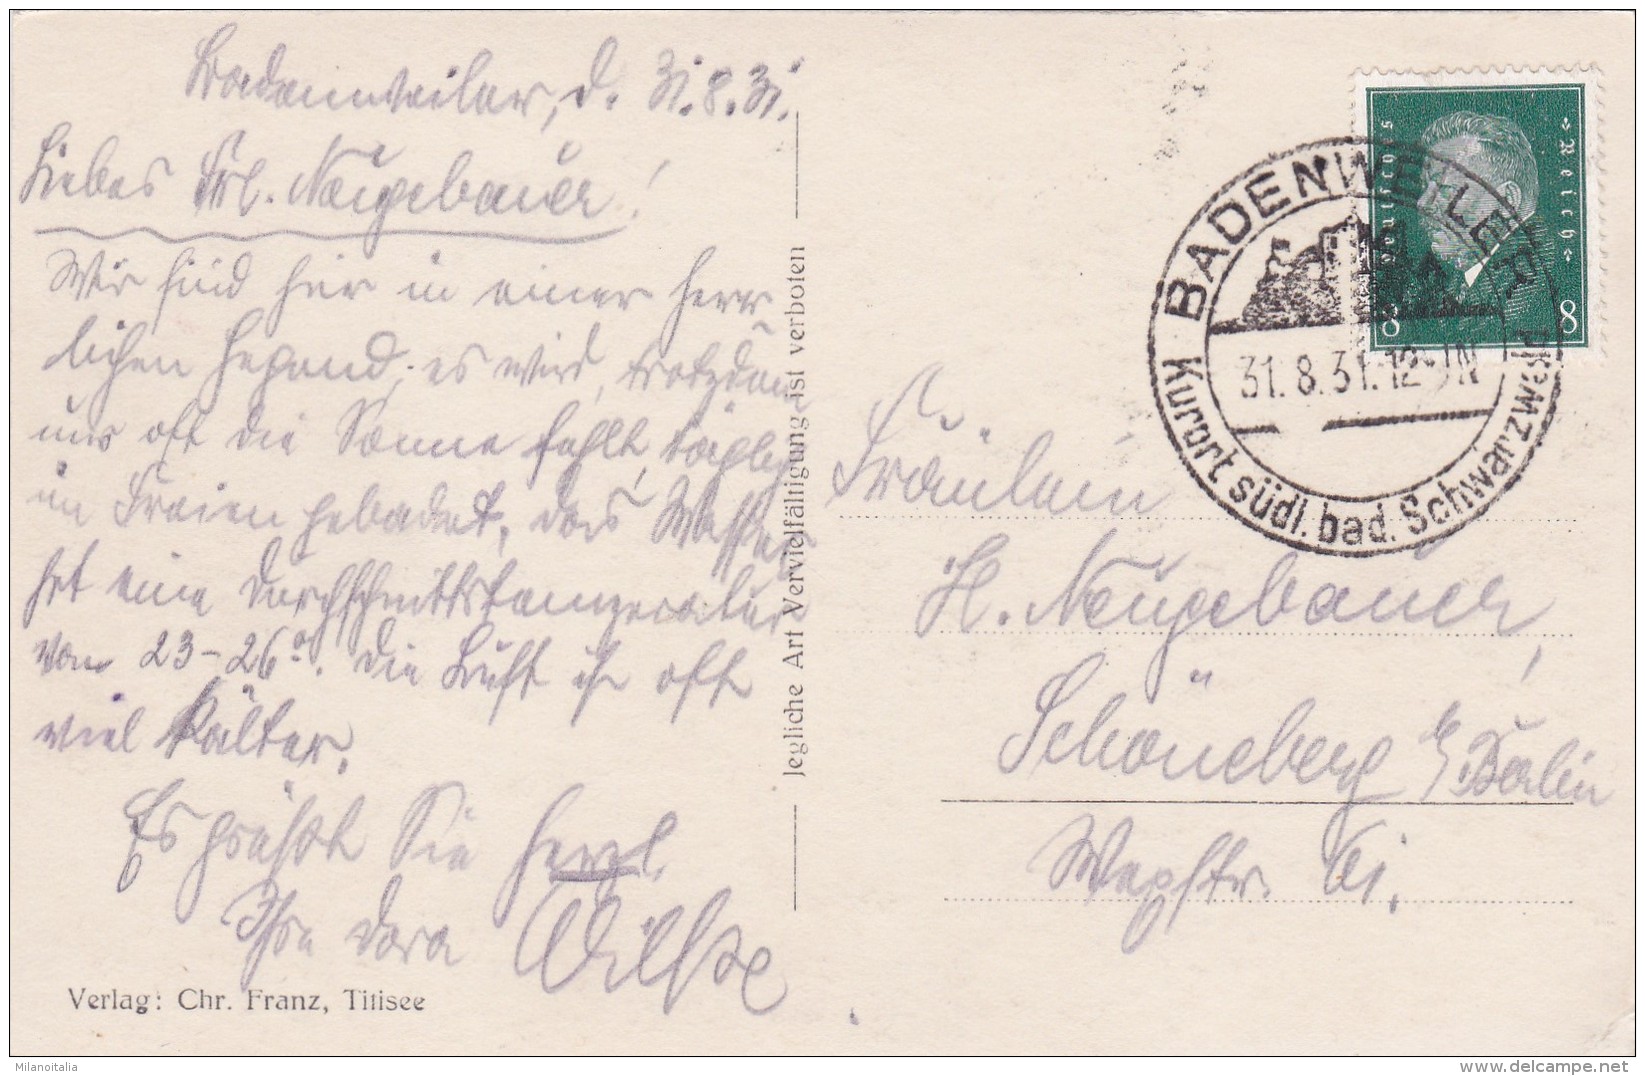 Badenweiler, d. 31.8.31.
Liebes Frl. Neugebauer!
Wir sind hier in einer herr
lichen Gegend, es wird, trotzdem
uns oft die Sonne fehlt, täglich
im Freien gebadet, das Wasser
hat eine Durchschnittstemperatur
von 23-26°. Die Luft ist oft
viel kälter.
Es grüßt Sie herzl.
Ihre Dora
Verlag: Chr. Franz, Titisee
Jegliche Art Vervielfältigung ist verboten
Deutsches Reich
8 8
BADENWEILER
31.8.31.12-1N
Kurort südl. bad. Schwarzwald
Fräulein
H. Neugebauer,
Schöneberg b/Berlin
61.
Milanoitalia
delcampe.net